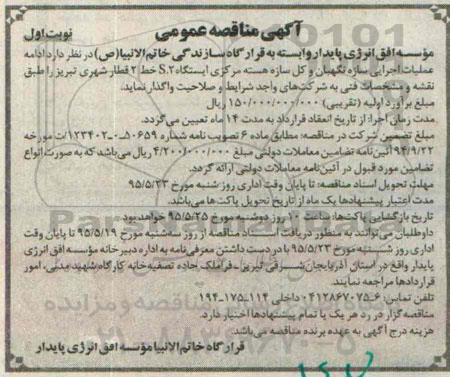 آگهی مناقصه عمومی
نوبت اول
مؤسسه افق انرژی پایدار وابسته به قرارگاه سازندگی خاتم الانبیا(ص) در نظر دارد ادامه
عملیات اجرایی سازه نگهبان و کل سازه هسته مرکزی ایستگاه S.2 خط 2 قطار شهری تبریز را طبق
نقشه و مشخصات فنی به شرکت‌های واجد شرایط و صلاحیت واگذار نماید.
مبلغ برآورد اولیه (تقریبی) ۱۵۰/۰۰۰/۰۰۰/۰۰۰ ریال
مدت زمان اجرا: از تاریخ انعقاد قرارداد به مدت ۱۴ ماه می‌گردد.
مبلغ تضمین شرکت در مناقصه: مطابق ماده ۶ تصویب نامه شماره ۵۰۶۵۹ه-۱۲۳۴۰۲/ت مورخه
۹۴/۹/۲۲ آئین نامه تضامین معاملات دولتی مبلغ ۴/۲۰۰/۰۰۰/۰۰۰ ریال می‌باشد که به صورت انواع
تضامین مورد قبول در آئین‌نامه معاملات دولتی ارائه گردد.
مهلت تحویل اسناد مناقصه: تا پایان وقت اداری روز شنبه مورخ ۹۵/۵/۲۳
مدت اعتبار پیشنهادها یک ماه از تاریخ تحویل پاکت‌ها می‌باشد.
تاریخ بازگشایی پاکت‌ها: ساعت ۱۰ روز دوشنبه مورخ ۹۵/۵/۲۵ خواهد بود.
داوطلبان می‌توانند به منظور دریافت اسناد مناقصه از روز سه‌شنبه مورخ ۹۵/۵/۱۹ تا پایان وقت
اداری روز شنبه مورخ ۹۵/۵/۲۳ با در دست داشتن معرفی‌نامه به اداره دبیرخانه مؤسسه افق انرژی
پایدار واقع در استان آذربایجان شرقی تبریز- قراملک جاده تصفیه خانه کارگاه شهید مدنی، امور
قراردادها مراجعه نمایند.
تلفن تماس: ۶-۰۴۱۲۸۶۷۰۷۵ داخلی ۱۱۴-۱۷۵-۱۹۴
مناقصه‌گزار در رد هر یک یا تمام پیشنهادها اختیار دارد.
هزینه درج آگهی به عهده برنده مناقصه می‌باشد.
قرارگاه خاتم الانبیا مؤسسه افق انرژی پایدار